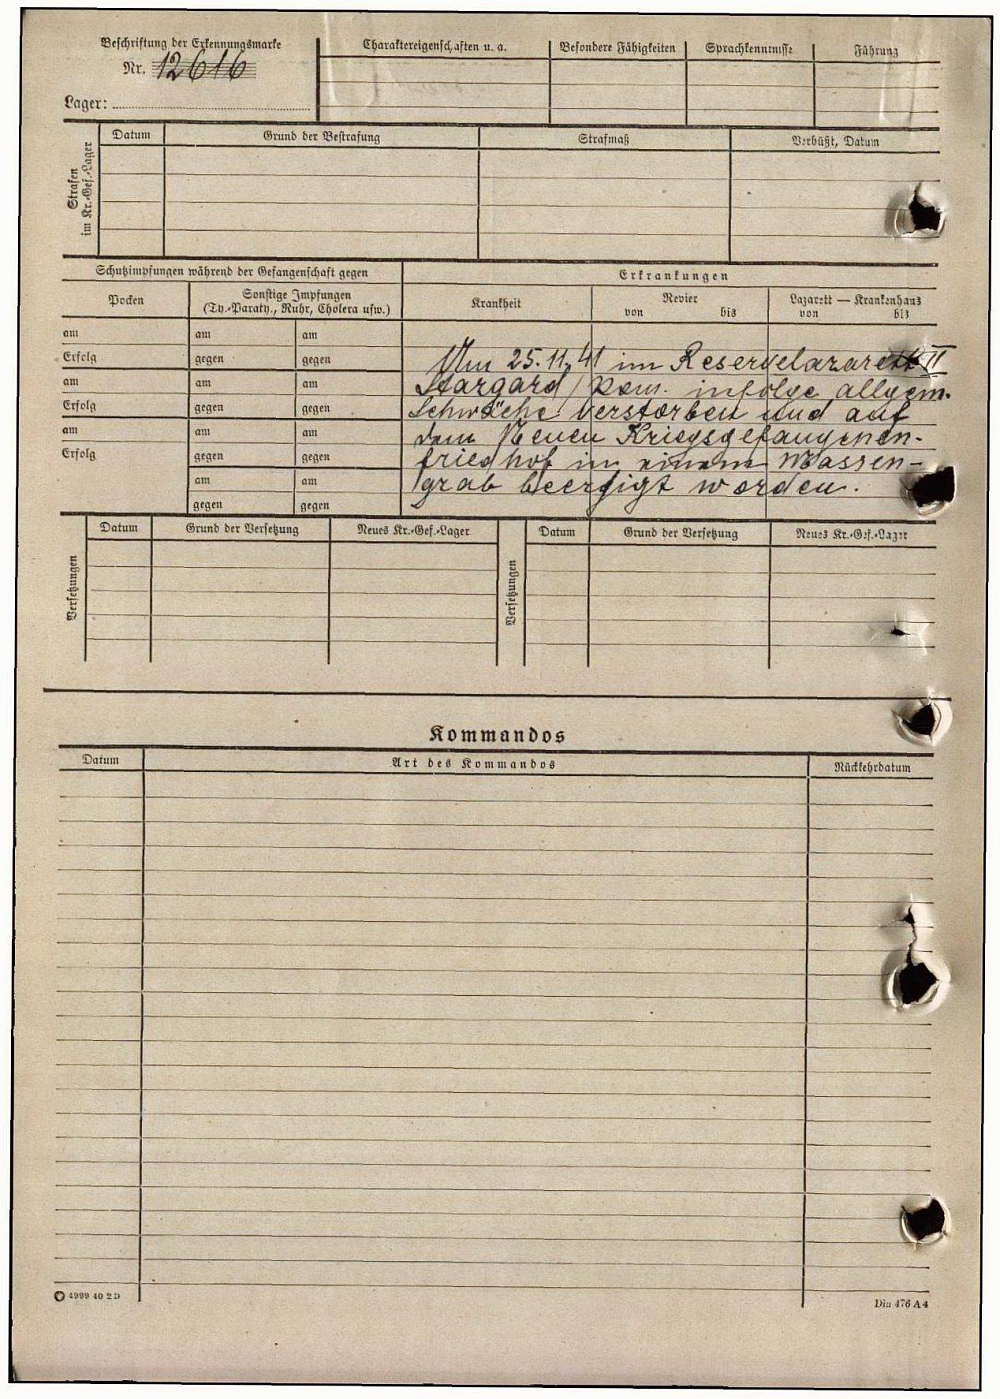 Beschriftung der Erkennungsmarke
Nr. 12616
Lager:
Charaktereigenschaften u. a.
Besondere Fähigkeiten
Sprachkenntnisse
Führung
Strafen im Kr.-Gef.-Lager
Datum
Grund der Bestrafung
Strafmaß
Verbüßt, Datum
Schutzimpfungen während der Gefangenschaft gegen
Erkrankungen
Pocken
Sonstige Impfungen
(Ty.-Paraty., Ruhr, Cholera usw.)
Krankheit
Revier
von bis
Lazarett — Krankenhaus
von bis
am am am
Erfolg gegen gegen
am am am
Erfolg gegen gegen
am am am
Erfolg gegen gegen
am am
gegen gegen
Am 25.11.41 im Reservelazarett II
Stargard/Pom. infolge allgem.
Schwäche verstorben und auf
dem Neuen Kriegsgefangenen-
friedhof in einem Massen-
grab beerdigt worden.
Versetzungen
Datum
Grund der Versetzung
Neues Kr.-Gef.-Lager
Versetzungen
Datum
Grund der Versetzung
Neues Kr.-Gef.-Lager
Kommandos
Datum
Art des Kommandos
Rückkehrdatum
4999 40 2 D
Din 476 A 4